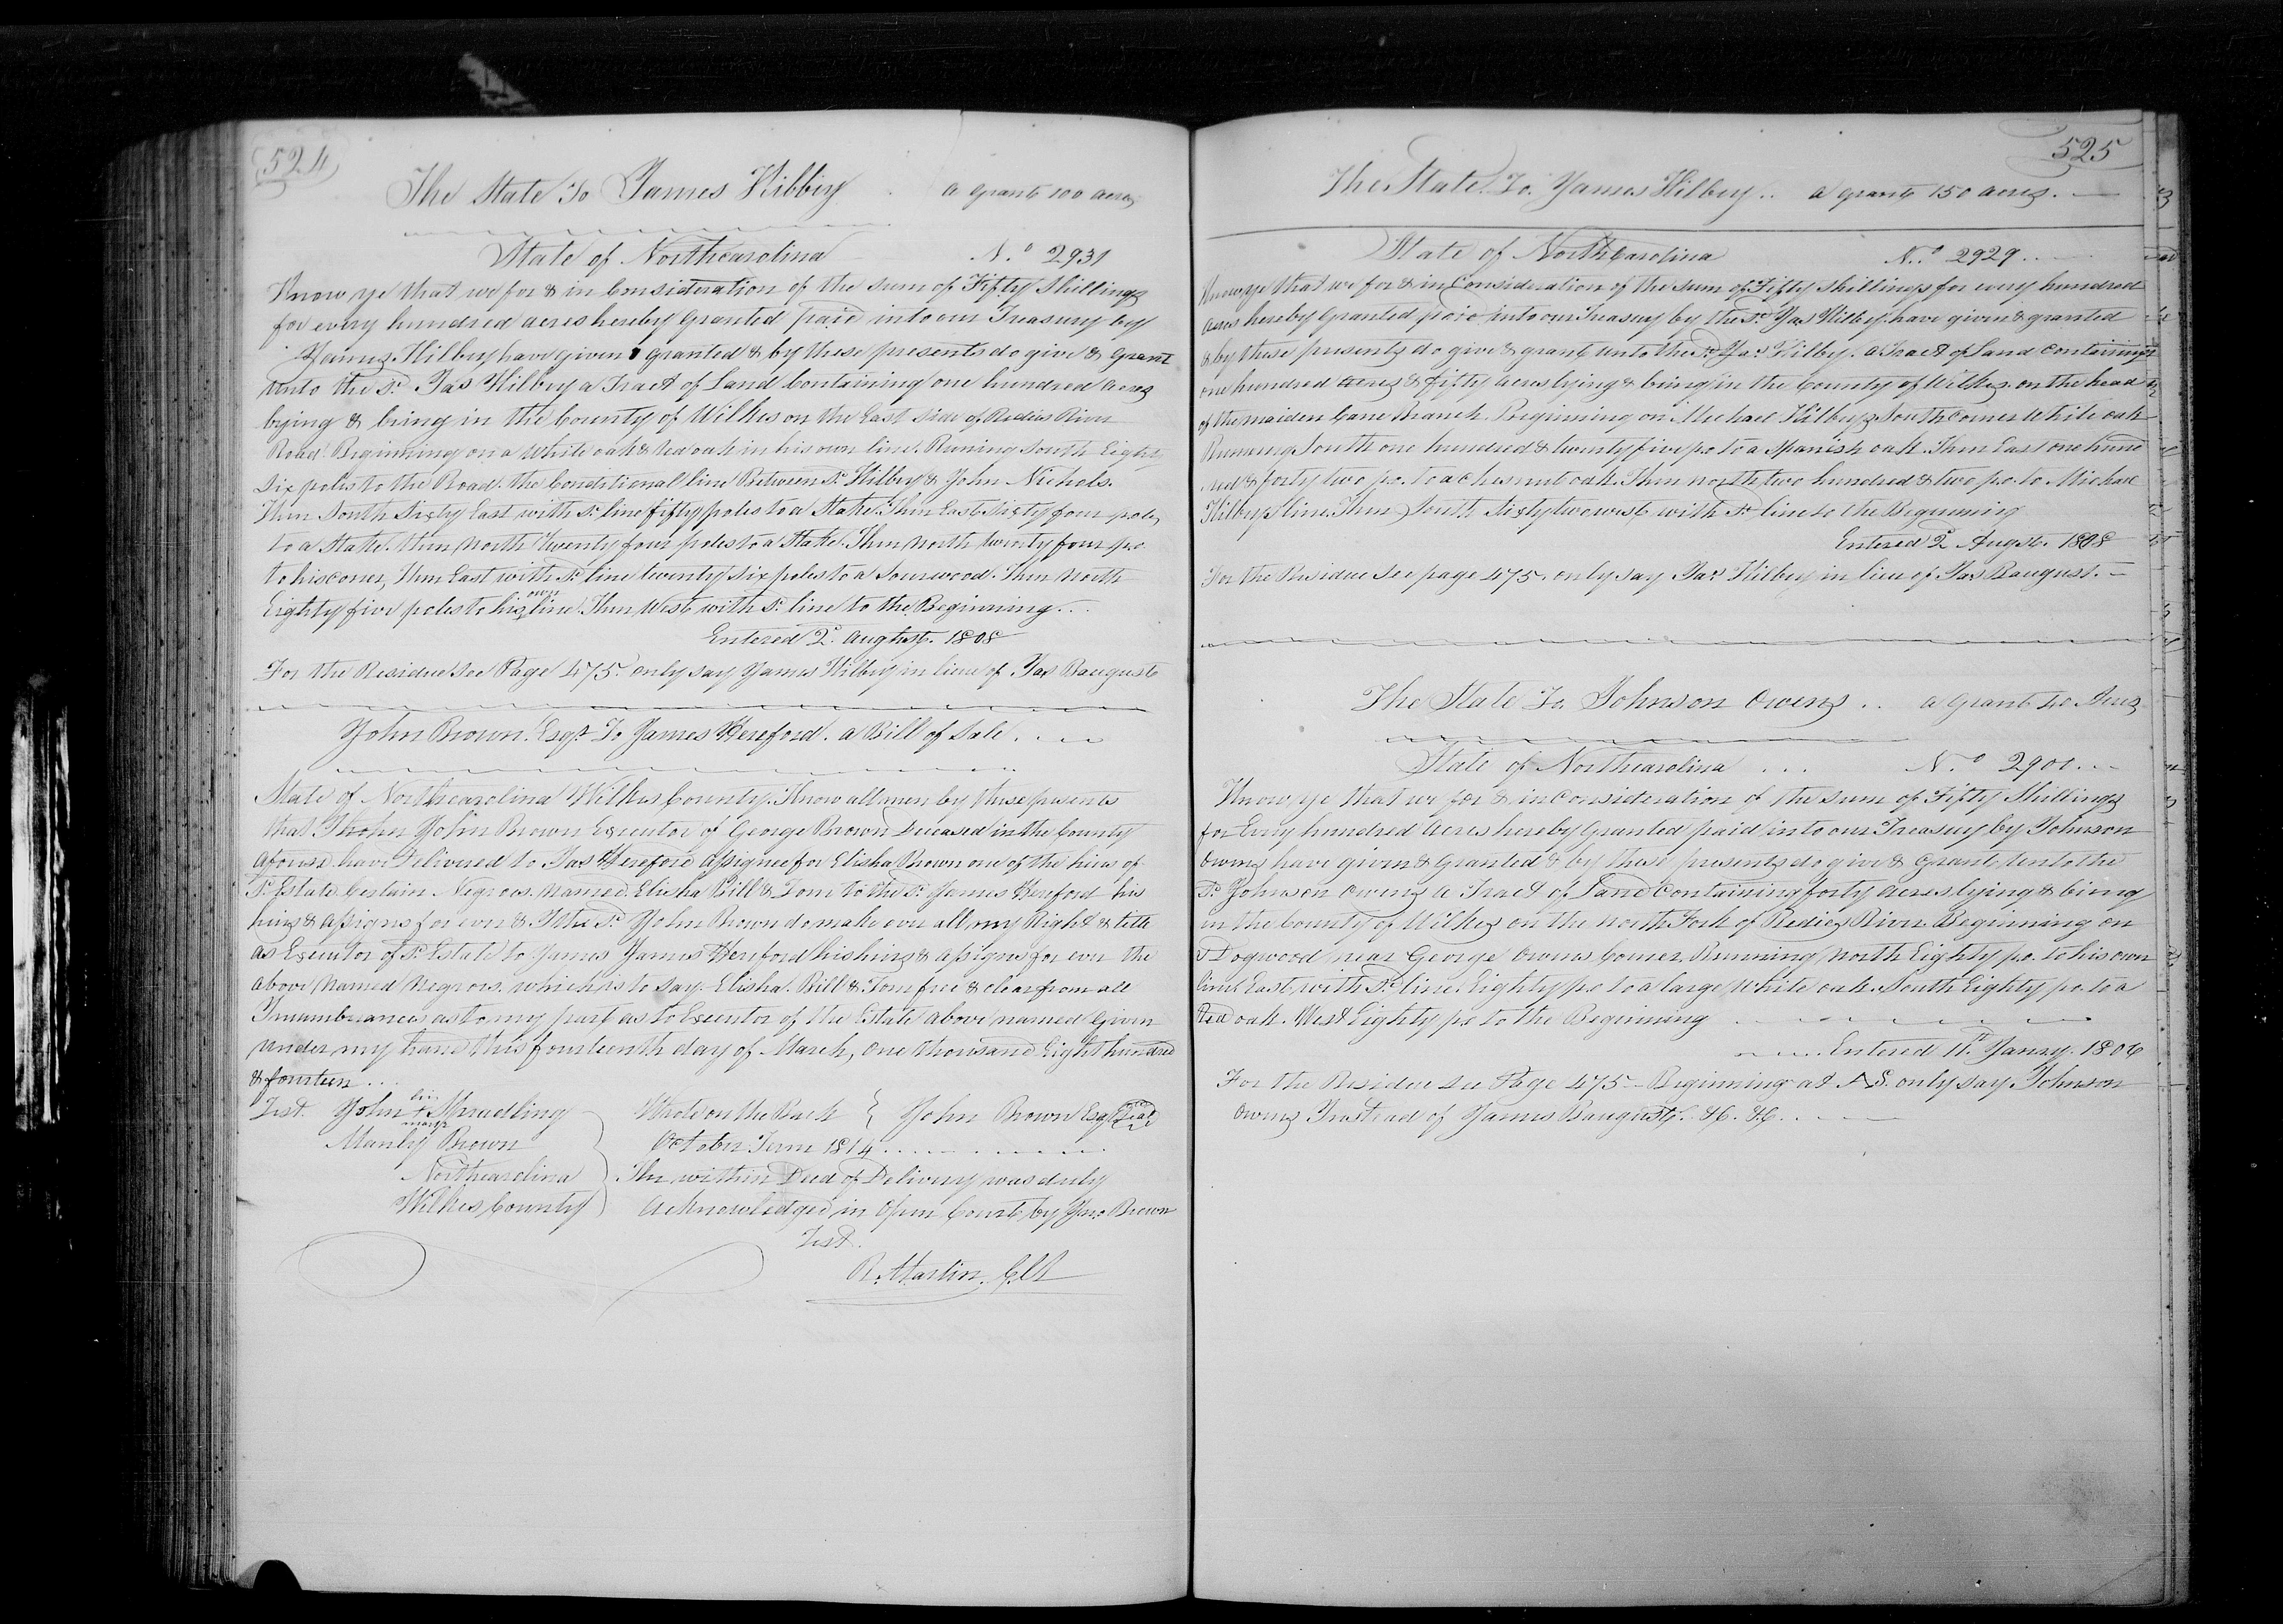 524
The State To James Kilbey . a grant 100 acres
State of Northcarolina No 2931
Know ye that we for & in Consideration of the sum of Fifty Shillings
for every hundred acres hereby Granted paid into our Treasury by
James Kilbey have given & granted & by these presents do give & Grant
unto the sd. Jas Kilbey a Tract of Land Containing one hundred acres
lying & being in the County of Wilkes on the East side of Redies River
Road. Beginning on a White oak & Red oak in his own line. Runing South Eighty
six poles to the Road. the Conditional line Between sd. Kilbey & John Nichols.
Then South Sixty East with sd. line fifty poles to a Stake. Then East Sixty four poles
to a Stake. then North Twenty four poles to a Stake. Then North twenty four po.
to his corner, Then East with sd. line twenty six poles to a Sourwood. Then North
Eighty five poles to his own line. Then West with sd. line to the Beginning...
Entered 2d. August. 1808
For the Residue see Page 475. only say James Kilbey in lieu of Jas Baugust
John Brown. Esqr. To James Hereford. a Bill of Sale. ...
State of Northcarolina Wilkes County. Know all men by these presents
that I John John Brown Executor of George Brown Deceased in the County
aforesd. have Delivered to Jas Hereford assignee for Elisha Brown one of the heirs of
sd. Estate. Certain Negroes. named. Elisha Bill & Tom to the sd. James Hereford his
heirs & assigns for ever & I the sd. John Brown do make over all my Right & title
as Executor of sd. Estate to James James Hereford his heirs & assigns for ever the
above Named Negroes. which is to say. Elisha. Bill & Tom free & clear from all
Incumbrances as to my part as to Executor of the Estate above named Given
under my hand this fourteenth day of March, one thousand Eight hundred
& fourteen ...
Test. John his + mark Spradling Wrote on the Back } John Brown Esqr. Seal
Manly Brown October Term 1814 ...
Northcarolina The within Deed of Delivery was duly
Wilkes County } acknowledged in Open Court by Jno. Brown
Test.
R. Martin. Clk
525
The State. To. James Kilbey .. a grant 150 acres. —
State of Northcarolina No. 2929 ...
Know ye that we for & in Consideration of the sum of Fifty shillings for every hundred
acres hereby Granted paid into our Treasury by the sd. Jas Kilbey. have given & granted
& by these presents do give & grant unto the sd. Jas. Kilbey. a Tract of Land Containing
one hundred acres & fifty acres lying & being in the County of Wilkes. on the head
of the maiden Cane Branch. Beginning on Michael Kilbeys South corner White oak
Running South one hundred & twenty five po. to a Spanish oak. Then East one hund
red & forty two po. to a chesnut oak. Then north two hundred & two po. to Michael
Kilbeys line. Then South Sixty two west with sd. line to the Beginning
Entered 2d August. 1808
For the Residue see page 475. only say Jas Kilbey in lieu of Jas Baugust. —
The State To Johnson Owens .. a grant 40 Acres
State of Northcarolina ... No. 2900 ...
Know ye that we for & in Consideration of the sum of Fifty Shillings
for Every hundred acres hereby Granted paid into our Treasury by Johnson
Owens have given & Granted & by these presents do give & Grant unto the
sd. Johnson Owens a Tract of Land Containing forty acres lying & being
in the County of Wilkes on the North Fork of Redies River Beginning on
a Dogwood near George Owens Corner. Running North Eighty po. to his own
line. East with sd. line. Eighty po to a large White oak. South Eighty po. to a
Red oak. West Eighty po to the Beginning
Entered 11th. Janry. 1806
For the Residue see Page 475 — Beginning at only say Johnson
Owens Instead of James Baugust. &c. &c. ...